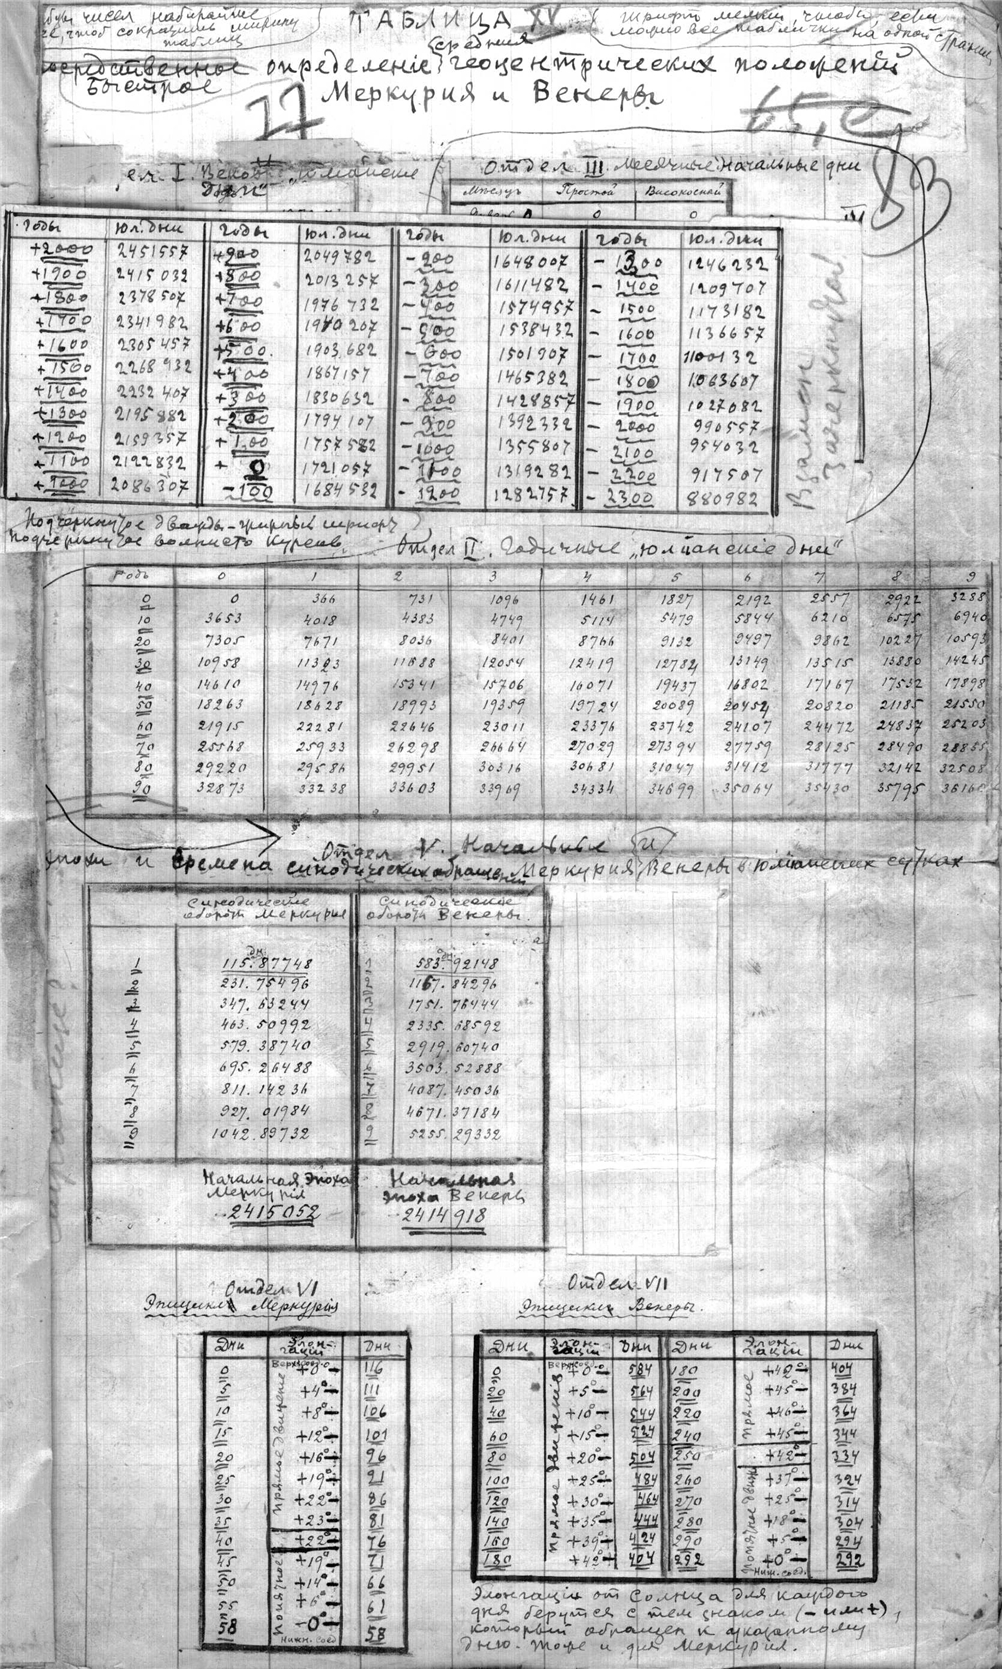 чисел набирайте
чтоб сократить ширину
таблиц
ТАБЛИЦА XV
шрифт мелкий, чтобы, если
можно все таблички на одной
средния
определенie геоцентрических положенiй
Быстрое
Меркурия и Венеры.
77
65,
83
Отдел III. Месячные начальные дни
Месяцъ Простой Високосной
Годы Юл. дни Годы Юл. дни Годы Юл. дни Годы Юл. дни
+2000 2451557 +900 2049782 -200 1648007 -1300 1246232
+1900 2415032 +800 2013257 -300 1611482 -1400 1209707
+1800 2378507 +700 1976732 -400 1574957 -1500 1173182
+1700 2341982 +600 1940207 -500 1538432 -1600 1136657
+1600 2305457 +500 1903682 -600 1501907 -1700 1100132
+1500 2268932 +400 1867157 -700 1465382 -1800 1063607
+1400 2232407 +300 1830632 -800 1428857 -1900 1027082
+1300 2195882 +200 1794107 -900 1392332 -2000 990557
+1200 2159357 +100 1757582 -1000 1355807 -2100 954032
+1100 2122832 + 0 1721057 -1100 1319282 -2200 917507
+1000 2086307 -100 1684532 -1200 1282757 -2300 880982
Взамен
зачеркнутой
Подчеркнутое дважды - жирный шрифт
подчеркнутое волнисто курсив
Отдел II. Годичные „юлианскiе дни“
Годы 0 1 2 3 4 5 6 7 8 9
0 0 366 731 1096 1461 1827 2192 2557 2922 3288
10 3653 4018 4383 4749 5114 5479 5844 6210 6575 6940
20 7305 7671 8036 8401 8766 9132 9497 9862 10227 10593
30 10958 11323 11688 12054 12419 12784 13149 13515 13880 14245
40 14610 14976 15341 15706 16071 19437 16802 17167 17532 17898
50 18263 18628 18993 19359 19724 20089 20454 20820 21185 21550
60 21915 22281 22646 23011 23376 23742 24107 24472 24837 25203
70 25568 25933 26298 26664 27029 27394 27759 28125 28490 28855
80 29220 29586 29951 30316 30681 31047 31412 31777 32142 32508
90 32873 33238 33603 33969 34334 34699 35064 35430 35795
Отдел V. Начальные
эпохи и времена синодических обращенiй Меркурия и Венеры в юлианских сутках
Синодическiе обороты Меркурия Синодическiе обороты Венеры.
дн.
1 115.87748 1 583.92148
2 231.75496 2 1167.84296
3 347.63244 3 1751.76444
4 463.50992 4 2335.68592
5 579.38740 5 2919.60740
6 695.26488 6 3503.52888
7 811.14236 7 4087.45036
8 927.01984 8 4671.37184
9 1042.89732 9 5255.29332
Начальная эпоха Меркурiя Начальная эпоха Венеры
2415052 2414918
Отдел VI
Эпициклы Меркурiя
Дни Элонгацiи Дни
Верхн. соед.
0 +0°- 116
5 +4°- 111
10 +8°- 106
15 +12°- 101
20 +16°- 96
25 +19°- 91
30 +22°- 86
35 +23°- 81
40 +22°- 76
45 +19°- 71
50 +14°- 66
55 +6°- 61
58 -0°- 58
Нижн. соед.
прямое движение
попячное
Отдел VII
Эпициклы Венеры.
Дни Элонгацiи Дни Дни Элонгацiи Дни
0 +0°- 584 180 +42°- 404
20 +5°- 564 200 +45°- 384
40 +10°- 544 220 +46°- 364
60 +15°- 524 240 +45°- 344
80 +20°- 504 250 +42°- 334
100 +25°- 484 260 +37°- 324
120 +30°- 464 270 +25°- 314
140 +35°- 444 280 +18°- 304
160 +39°- 424 290 +5°- 294
180 +42°- 404 292 +0°- 292
Нижн. соед.
прямое движение
прямое
попячное движ.
Элонгацiи от Солнца для каждого
дня берутся с тем знаком (- или +),
который обращен к указанному
дню. Тоже и для Меркурия.